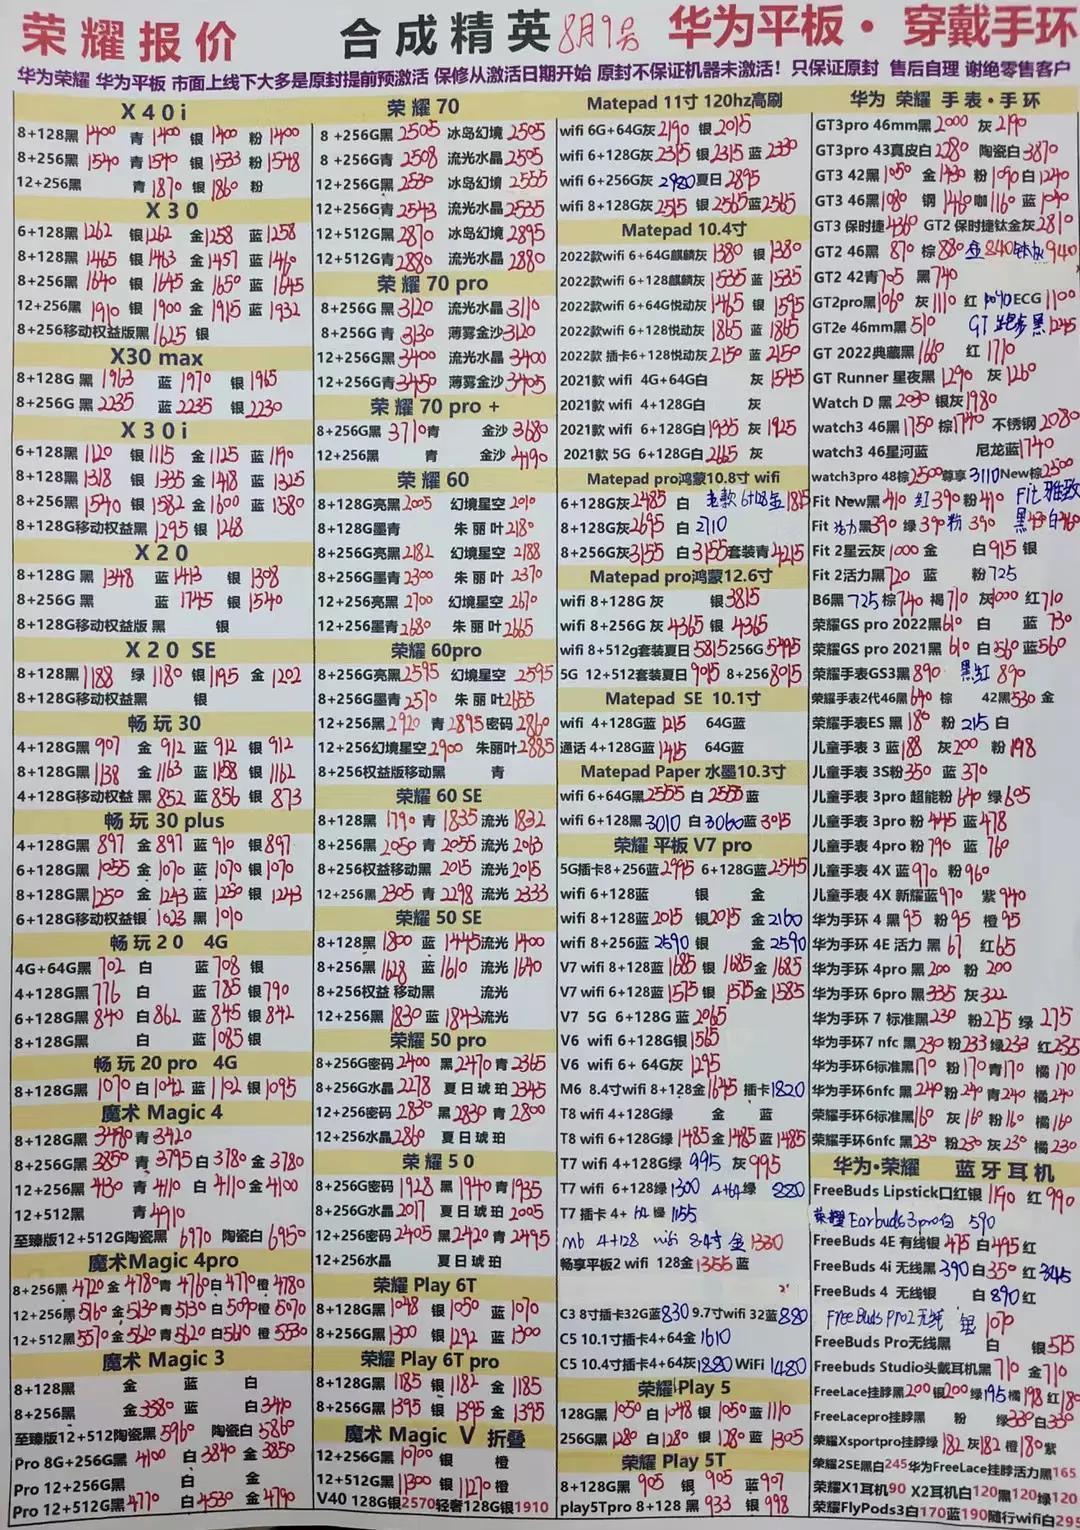 荣耀报价 合成精英 8月9号 华为平板·穿戴手环
华为荣耀 华为平板 市面上线下大多是原封提前预激活 保修从激活日期开始 原封不保证机器未激活！只保证原封 售后自理 谢绝零售客户
X40i
8+128黑1400 青1400 银1400 粉1400
8+256黑1540 青1540 银1533 粉1548
12+256黑 青1870 银1860 粉
X30
6+128黑1262 银1262 金1258 蓝1258
8+128黑1465 银1463 金1457 蓝1460
8+256黑1640 银1645 金1650 蓝1645
12+256黑1910 银1900 金1915 蓝1932
8+256移动权益版黑1625 银
X30 max
8+128G 黑1963 蓝1970 银1965
8+256G 黑2235 蓝2235 银2230
X30i
6+128黑1120 银1115 金1125 蓝1190
8+128黑1318 银1335 金1418 蓝1325
8+256黑1540 银1582 金1600 蓝1580
8+128G移动权益黑1295 银1268
X20
8+128G 黑1348 蓝1413 银1398
8+256G 黑 蓝1745 银1540
8+128G移动权益版 黑 银
X20 SE
8+128黑1188 绿1180 银1195 金1202
8+128G移动权益黑 银
畅玩30
4+128G黑907 金912 蓝912 银912
8+128G黑1138 金1163 蓝1158 银1162
4+128G移动权益 黑852 蓝856 银873
畅玩30 plus
4+128G黑897 金897 蓝910 银897
6+128G黑1055 金1070 蓝1070 银1070
8+128G黑1250 金1243 蓝1230 银1243
6+128G移动权益银1023 黑1010
畅玩20 4G
4G+64G黑702 白 蓝708 银
4+128G黑776 白 蓝785 银790
6+128G黑840 白862 蓝845 银842
8+128G黑 白 蓝1085 银
畅玩20 pro 4G
8+128G黑1070 白1042 蓝1102 银1095
魔术 Magic 4
8+128G黑3490 青3420
8+256G黑3850 青3795 白3780 金3780
12+256黑4130 青4110 白4110 金4100
12+512黑 青4910
至臻版12+512G陶瓷黑6970 陶瓷白6950
魔术Magic 4pro
8+256黑4720 金4780 青4760 白4770 橙4780
12+256黑5160 金5130 青5130 白5090 橙5070
12+512黑5570 金5620 青5620 白5610 橙5530
魔术 Magic 3
8+128黑 金 蓝 白
8+256黑 金3580 蓝 白3410
至臻版12+512陶瓷黑5960 陶瓷白5860
Pro 8G+256G黑4100 白3840 金3850
Pro 12+256G黑 白 金
Pro 12+512G黑4770 白4530 金4790
荣耀 70
8 +256G黑2505 冰岛幻境2505
8 +256G青2508 流光水晶2505
12+256G黑2530 冰岛幻境2555
12+256G青2543 流光水晶2535
12+512G黑2870 冰岛幻境2895
12+512G青2880 流光水晶2880
荣耀 70 pro
8+256G黑3120 流光水晶3110
8+256G青3130 薄雾金沙3120
12+256G黑3400 流光水晶3400
12+256G青3450 薄雾金沙3405
荣耀 70 pro +
8+256G黑3710 青 金沙3680
12+256黑 青 金沙4190
荣耀 60
8+128G亮黑2005 幻境星空2010
8+128G墨青 朱丽叶2180
8+256G亮黑2182 幻境星空2188
8+256G墨青2300 朱丽叶2370
12+256亮黑2700 幻境星空2670
12+256墨青2680 朱丽叶2665
荣耀 60pro
8+256G亮黑2595 幻境星空2595
8+256G墨青2570 朱丽叶2655
12+256黑2920 青2895 密码2860
12+256幻境星空2900 朱丽叶2885
8+256权益版移动黑 青
荣耀 60 SE
8+128黑1790 青1835 流光1832
8+256黑2050 青2055 流光2013
8+256权益移动黑 2015 流光2015
12+256黑2305 青2298 流光2333
荣耀 50 SE
8+128黑1800 蓝1445 流光1400
8+256黑1628 蓝1610 流光1640
8+256权益 移动黑 流光
12+256黑1830 蓝1843 流光
荣耀 50 pro
8+256G密码2400 黑2470 青2365
8+256G水晶2278 夏日琥珀2345
12+256密码2830 黑2830 青2800
12+256水晶2860 夏日琥珀
荣耀50
8+256G密码1928 黑1940 青1935
8+256G水晶2017 夏日琥珀2005
12+256密码2405 黑2420 青2495
12+256水晶 夏日琥珀
荣耀 Play 6T
8+128G黑1048 银1050 蓝1070
8+256G黑1300 银1292 蓝1300
荣耀 Play 6T pro
8+128G黑1185 银1182 金1185
8+256G黑1395 银1395 金1395
魔术 Magic V 折叠
12+256G黑10700 银 橙
12+512G黑11300 银11270 橙
V40 128G银2570轻奢128G银1910
Matepad 11寸 120hz高刷
wifi 6G+64G灰2190 银2015
wifi 6+128G灰2315 银2315 蓝2330
wifi 6+256G灰 2920 夏日2895
wifi 8+128G灰2515 银2565 蓝2565
Matepad 10.4寸
2022款wifi 6+64G麒麟灰1380 银1380
2022款wifi 6+128麒麟灰1535 蓝1535
2022款wifi 6+64G悦动灰1465 银1595
2022款wifi 6+128悦动灰1865 蓝1865
2022款 插卡6+128悦动灰2150 蓝2150
2021款 wifi 4G+64G白 灰1545
2021款 wifi 4+128G白 灰
2021款 wifi 6+128G白1935 灰1925
2021款 5G 6+128G白2165 灰
Matepad pro鸿蒙10.8寸 wifi
6+128G灰2485 白 老款6+128金1815
8+128G灰2695 白2710
8+256G灰3155 白3155套装青4215
Matepad pro鸿蒙12.6寸
wifi 8+128G 灰 银3815
wifi 8+256G 灰4365 银4365
wifi 8+512g套装夏日5815 256G5495
5G 12+512套装夏日9015 8+2568015
Matepad SE 10.1寸
wifi 4+128G蓝1215 64G蓝
通话 4+128G蓝1415 64G蓝
Matepad Paper 水墨10.3寸
wifi 6+64G黑2555 白2555 蓝
wifi 6+128黑3010 白3060 蓝3015
荣耀 平板 V7 pro
5G插卡8+256蓝2995 6+128G蓝2545
wifi 6+128蓝 银 金
wifi 8+128蓝2015 银2015 金2160
wifi 8+256蓝2590 银 金2590
V7 wifi 8+128蓝1685 银1685 金1685
V7 wifi 6+128蓝1575 银1575 金1585
V7 5G 6+128G 蓝2065
V6 wifi 6+128G银1565
V6 wifi 6+ 64G灰1295
M6 8.4寸wifi 8+128金1645 插卡1820
T8 wifi 4+128G绿 金 蓝
T8 wifi 6+128G绿1485 金1485 蓝1485
T7 wifi 4+128G绿 995 灰995
T7 wifi 6+128绿1300 4+64绿 880
T7 插卡 4+64 绿1155
M6 4+128 wifi 8.4寸 金1330
畅享平板2 wifi 128金1355蓝
C3 8寸插卡32G蓝830 9.7寸wifi 32蓝880
C5 10.1寸插卡4+64金1610
C5 10.4寸插卡4+64灰1880 WiFi 1480
荣耀Play 5
128G黑1050 白1048 银1050 蓝1110
256G黑1280 白1280 银1280 蓝1305
荣耀 Play 5T
8+128G黑905 银905 蓝907
play5Tpro 8+128 黑933 银998
华为 荣耀 手表·手环
GT3pro 46mm黑2000 灰2190
GT3pro 43真皮白2280 陶瓷白3870
GT3 42黑1050 金1430 粉1090白1240
GT3 46黑1080 钢1460咖1160 蓝1040
GT3 保时捷4360 GT2 保时捷钛金灰2810
GT2 46黑870 棕880 金840钛灰940
GT2 42青705 黑740
GT2pro黑1060 灰1110 红1040ECG1100
GT2e 46mm黑510 GT跑步黑1245
GT 2022典藏黑1660 红1710
GT Runner 星夜黑1290 灰1260
Watch D 黑2030 银灰1980
watch3 46黑1750 棕1740 不锈钢2080
watch3 46星河蓝 尼龙蓝1740
watch3pro 48棕2500尊享3110New棕2500
Fit New黑410 红390粉410 Fit雅致
Fit 活力黑390 绿390粉390 黑430白460
Fit 2星云灰1000 金 白915 银
Fit 2活力黑720 蓝 粉725
B6黑725棕740 褐710 灰1000 红710
荣耀GS pro 2022黑610 白 蓝730
荣耀GS pro 2021黑610 白560 蓝560
荣耀手表GS3黑890 黑红890
荣耀手表2代46黑640 棕 42黑530 金
荣耀手表ES 黑180 粉215 白
儿童手表 3 蓝188 灰200 粉198
儿童手表 3S粉350 蓝370
儿童手表 3pro 超能粉640 绿605
儿童手表 3pro 粉445 蓝478
儿童手表 4pro 粉790 蓝760
儿童手表 4X 蓝970 粉960
儿童手表 4X 新耀蓝970 紫940
华为手环 4 黑95 粉95 橙95
华为手环 4E 活力 黑67 红65
华为手环 4pro 黑200 粉200
华为手环 6pro 黑335 灰322
华为手环 7 标准黑230 粉275 绿275
华为手环7 nfc 黑230 粉233 绿233 红235
华为手环6标准黑170 粉170 青170 橘170
华为手环6nfc 黑240 粉240 青240 橘240
荣耀手环6标准黑160 灰160 粉160 橘160
荣耀手环6nfc 黑230 粉230 灰230 橘230
华为·荣耀 蓝牙耳机
FreeBuds Lipstick口红银1190 红990
荣耀Earbuds3pro白 590
FreeBuds 4E 有线银475 白495 红
FreeBuds 4i 无线黑390白350红345
FreeBuds 4 无线银 白890 红
FreeBuds Pro2无线 银1070
FreeBuds Pro无线黑 白 银575
Freebuds Studio头戴耳机黑710 金710
FreeLace挂脖黑200银200绿195橘198红180
FreeLacepro挂脖黑 粉 绿330白330
荣耀Xsportpro挂脖绿182灰182橙180紫
荣耀2SE黑白245华为FreeLace挂脖活力黑165
荣耀X1耳机90 X2耳机白120黑120绿120
荣耀FlyPods3白170蓝190随行wifi白295